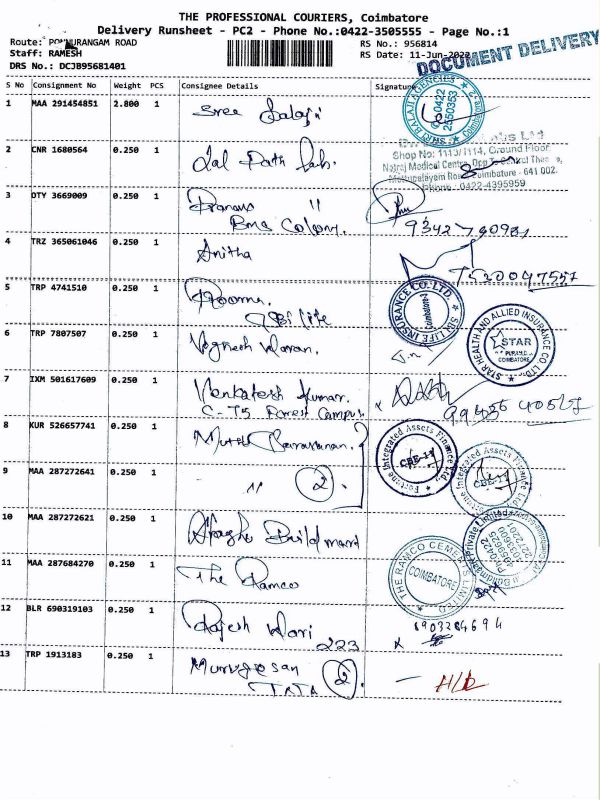 THE PROFESSIONAL COURIERS, Coimbatore
Delivery Runsheet - PC2 - Phone No.:0422-3505555 - Page No.:1
Route: PONNURANGAM ROAD
RS No.: 956814
Staff: RAMESH
RS Date: 11-Jun-2022
DRS No.: DCJB95681401
DOCUMENT DELIVERY
S No Consignment No Weight PCS Consignee Details Signature
1 MAA 291454851 2.800 1 Sree Balaji
SHRI BALAJI AGENCIES
0422
2550353
2 CNR 1680564 0.250 1 Lal Path Lab.
Shop No: 1113/1114, Ground Floor
Natraj Medical Centre, Opp
Mettupalayam Road, Coimbatore - 641 002.
Phone : 0422-4395959
3 DTY 3669009 0.250 1 Pranav "
Bms Colony.
4 TRZ 365061046 0.250 1 Anitha
7530047557
5 TRP 4741510 0.250 1 Poorna.
SBI life
SBI LIFE INSURANCE CO. LTD.
Coimbatore-2
6 TRP 7807507 0.250 1 Vignesh Waran.
STAR HEALTH AND ALLIED INSURANCE CO LTD.
STAR
COIMBATORE
7 IXM 501617609 0.250 1 Venkatesh Kumar.
C-75 Forest Campus
8 KUR 526657741 0.250 1 Muthu
Fortune Integrated Assets Finance Ltd.
CBE-11
9 MAA 287272641 0.250 1 " 2.
Integrated Assets Finance Ltd.
CBE-11
10 MAA 287272621 0.250 1 Buildmart
Buildmart Private Limited
11 MAA 287684270 0.250 1 The Ramco
THE RAMCO CEMENTS LIMITED
COIMBATORE
12 BLR 690319103 0.250 1 Rajesh
223
13 TRP 1913183 0.250 1 Murugesan
TATA 2